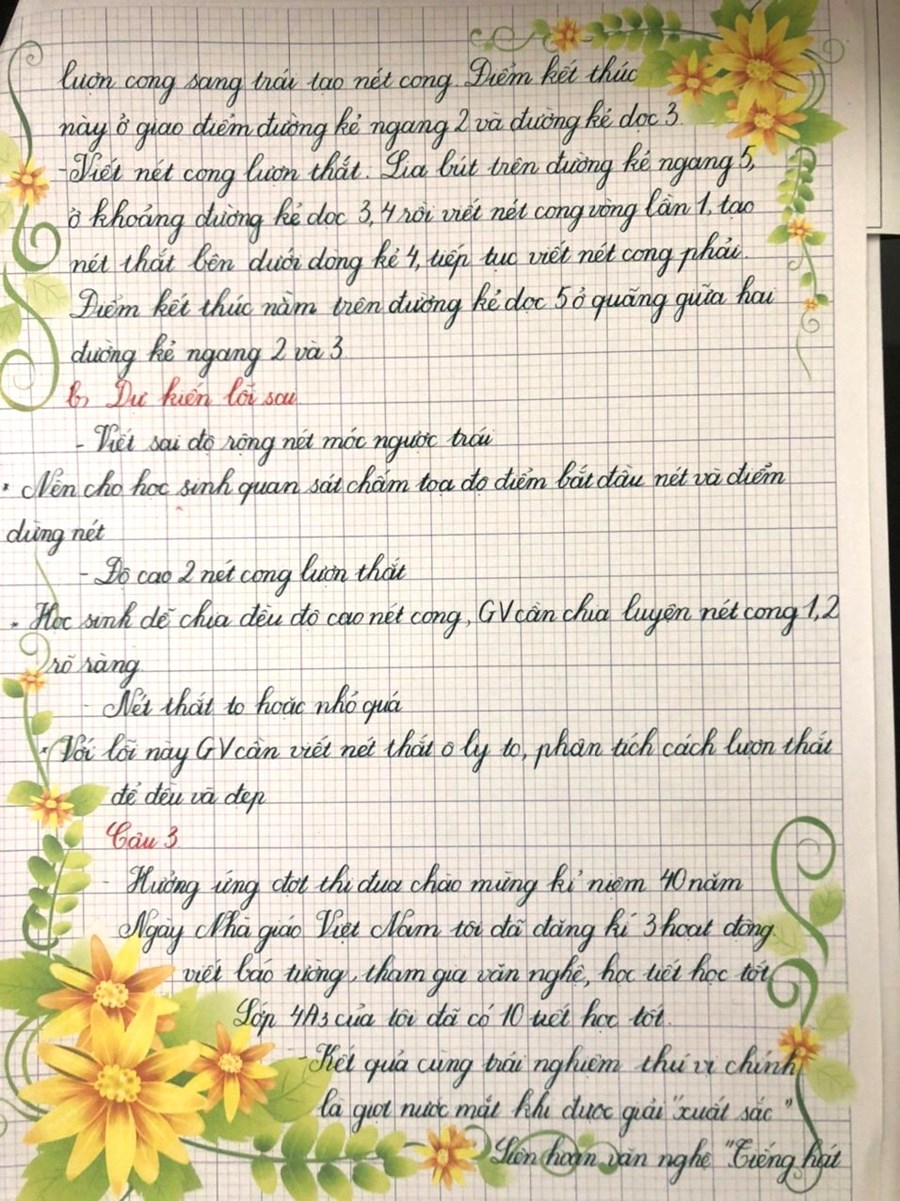 lượn cong sang trái tạo nét cong. Điểm kết thúc
này ở giao điểm đường kẻ ngang 2 và đường kẻ dọc 3
- Viết nét cong lượn thắt. Lia bút trên đường kẻ ngang 5,
ở khoảng đường kẻ dọc 3, 4 rồi viết nét cong vòng lần 1, tạo
nét thắt bên dưới dòng kẻ 4, tiếp tục viết nét cong phải.
Điểm kết thúc nằm trên đường kẻ dọc 5 ở quãng giữa hai
đường kẻ ngang 2 và 3
b, Dự kiến lỗi sai
- Viết sai độ rộng nét móc ngược trái
* Nên cho học sinh quan sát chấm tọa độ điểm bắt đầu nét và điểm
dừng nét
- Độ cao 2 nét cong lượn thắt
* Học sinh dễ chia đều độ cao nét cong, GV cần chia luyện nét cong 1, 2
rõ ràng
- Nét thắt to hoặc nhỏ quá
* Với lỗi này GV cần viết nét thắt ô ly to, phân tích cách lượn thắt
để đều và đẹp
Câu 3
- Hưởng ứng đợt thi đua chào mừng kỉ niệm 40 năm
Ngày Nhà giáo Việt Nam tôi đã đăng kí 3 hoạt động
viết báo tường, tham gia văn nghệ, học tiết học tốt,
Lớp 4A3 của tôi đã có 10 tiết học tốt.
- Kết quả cùng trải nghiệm thú vị chính
là giọt nước mắt khi được giải "xuất sắc"
Liên hoan văn nghệ "Tiếng hát